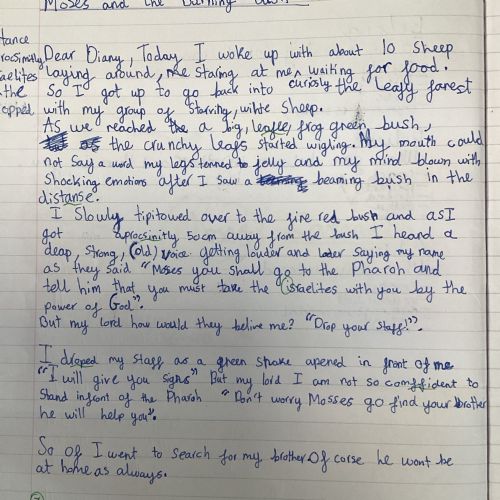 Moses and the Burning bush
tance
rocsimitly
raelites
the
opped
Dear Diany, Today I woke up with about 10 sheep
laying around, me staring at me, waiting for food.
So I got up to go back into curiosly the leafy forest
with my group of starving, wihte sheep.
As we reached the a big, leafee, frog green bush,
as the crunchy leafs started wigling. My mouth could
not say a word my legs tenned to jelly and my mind blown with
shocking emotions after I saw a beaming bush in the
distanse.
I slowly tipitowed over to the fire red bush and as I
got aprocsinitly 50cm away from the bush I heard a
deap, strong, (old) voice getting louder and later saying my name
as they said "Moses you shall go to the Pharoh and
tell him that you must take the israelites with you bay the
power of God".
But my lord how would they belive me? "Drop your staff!".
I droped my staff as a green snake apened in front of me
"I will give you signs" But my lord I am not so comffident to
stand infront of the Pharoh "Don't worry Mosses go find your brother
he will help you".
So of I went to search for my brother. Of corse he wont be
at home as always.